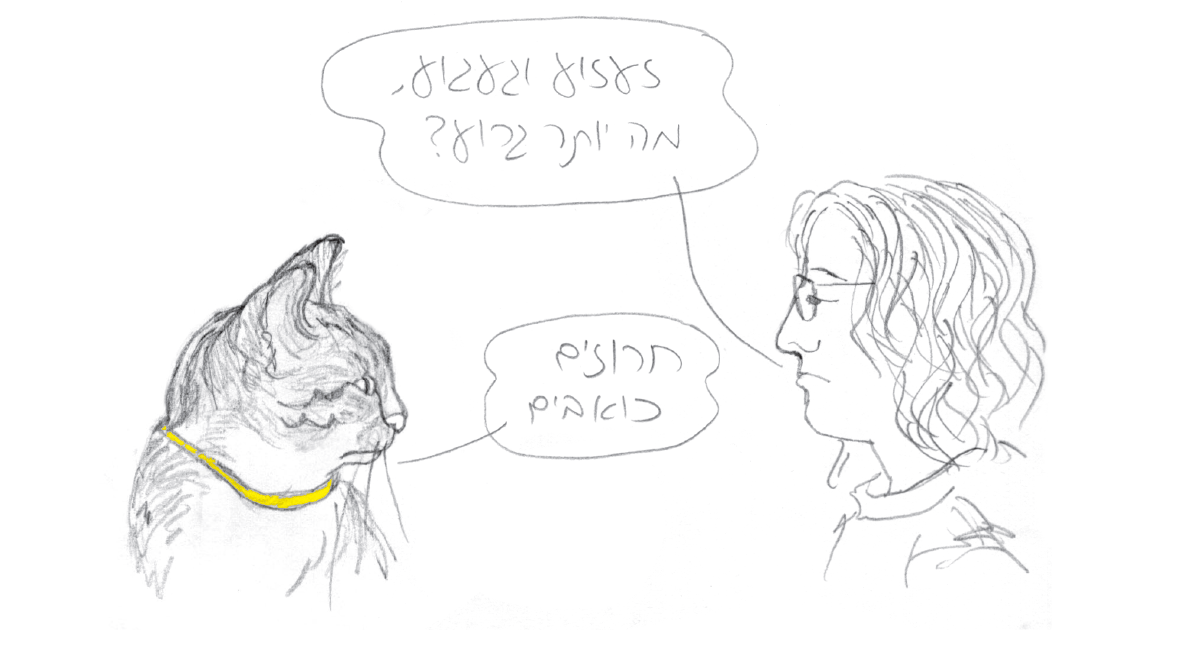 זעזוע וגעגוע,
מה יותר גרוע?
חרוזים
כואבים